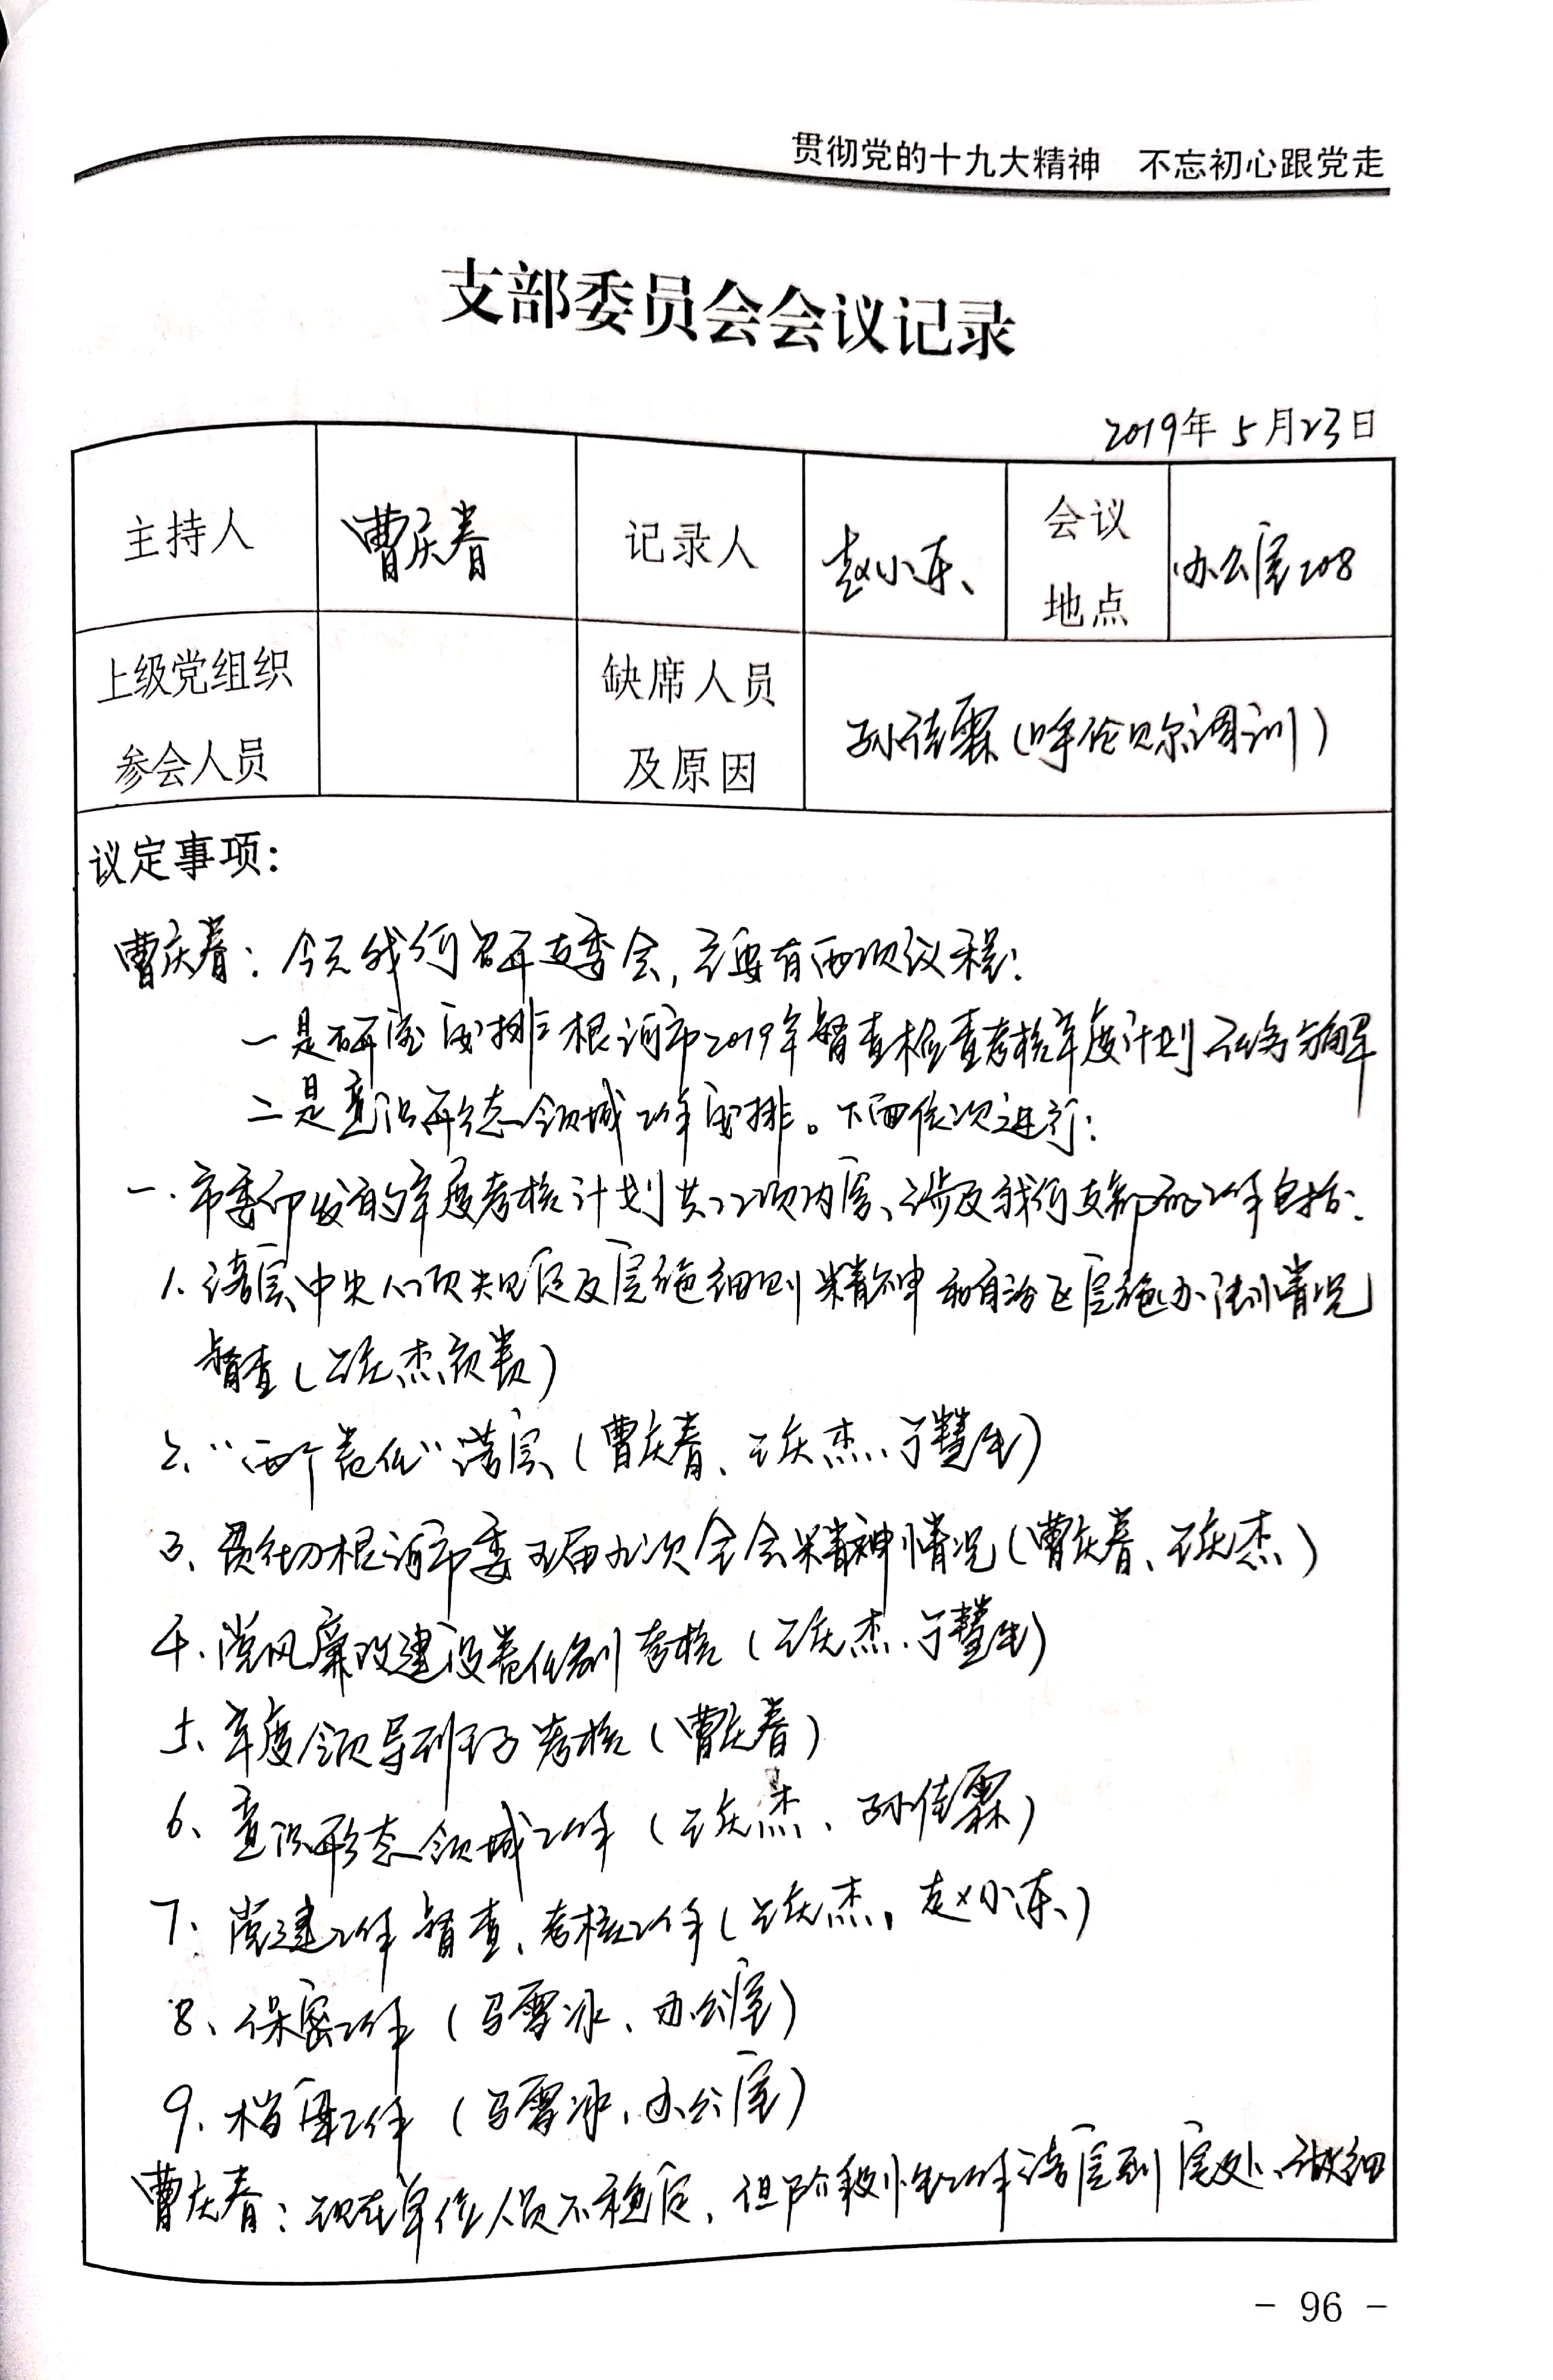 贯彻党的十九大精神 不忘初心跟党走
支部委员会会议记录
2019年5月23日
主持人 曹庆春 记录人 赵小东 会议地点 办公室208
上级党组织参会人员 缺席人员及原因 孙佳霖(呼伦贝尔调训)
议定事项:
曹庆春:今天我们召开支委会,主要有两项议程:
一是研究安排根河市2019年督查检查考核年度计划任务分解
二是意识形态领域工作安排。下面依次进行:
一.市委印发的年度考核计划共22项内容、涉及我们支部的工作包括:
1.落实中央八项规定及实施细则精神和自治区实施办法情况
督查(王庆杰负责)
2、“两个责任”落实(曹庆春、王庆杰、于慧生)
3、贯彻根河市委五届九次全会精神情况(曹庆春、王庆杰)
4.党风廉政建设责任制考核(王庆杰、于慧生)
5、年度领导班子考核(曹庆春)
6、意识形态领域工作(王庆杰、孙佳霖)
7、党建工作督查、考核工作(王庆杰,赵小东)
8、保密工作(马雪冰、办公室)
9、档案工作(马雪冰、办公室)
曹庆春:现在单位人员不稳定,但阶段性工作落实到实处、做细
- 96 -